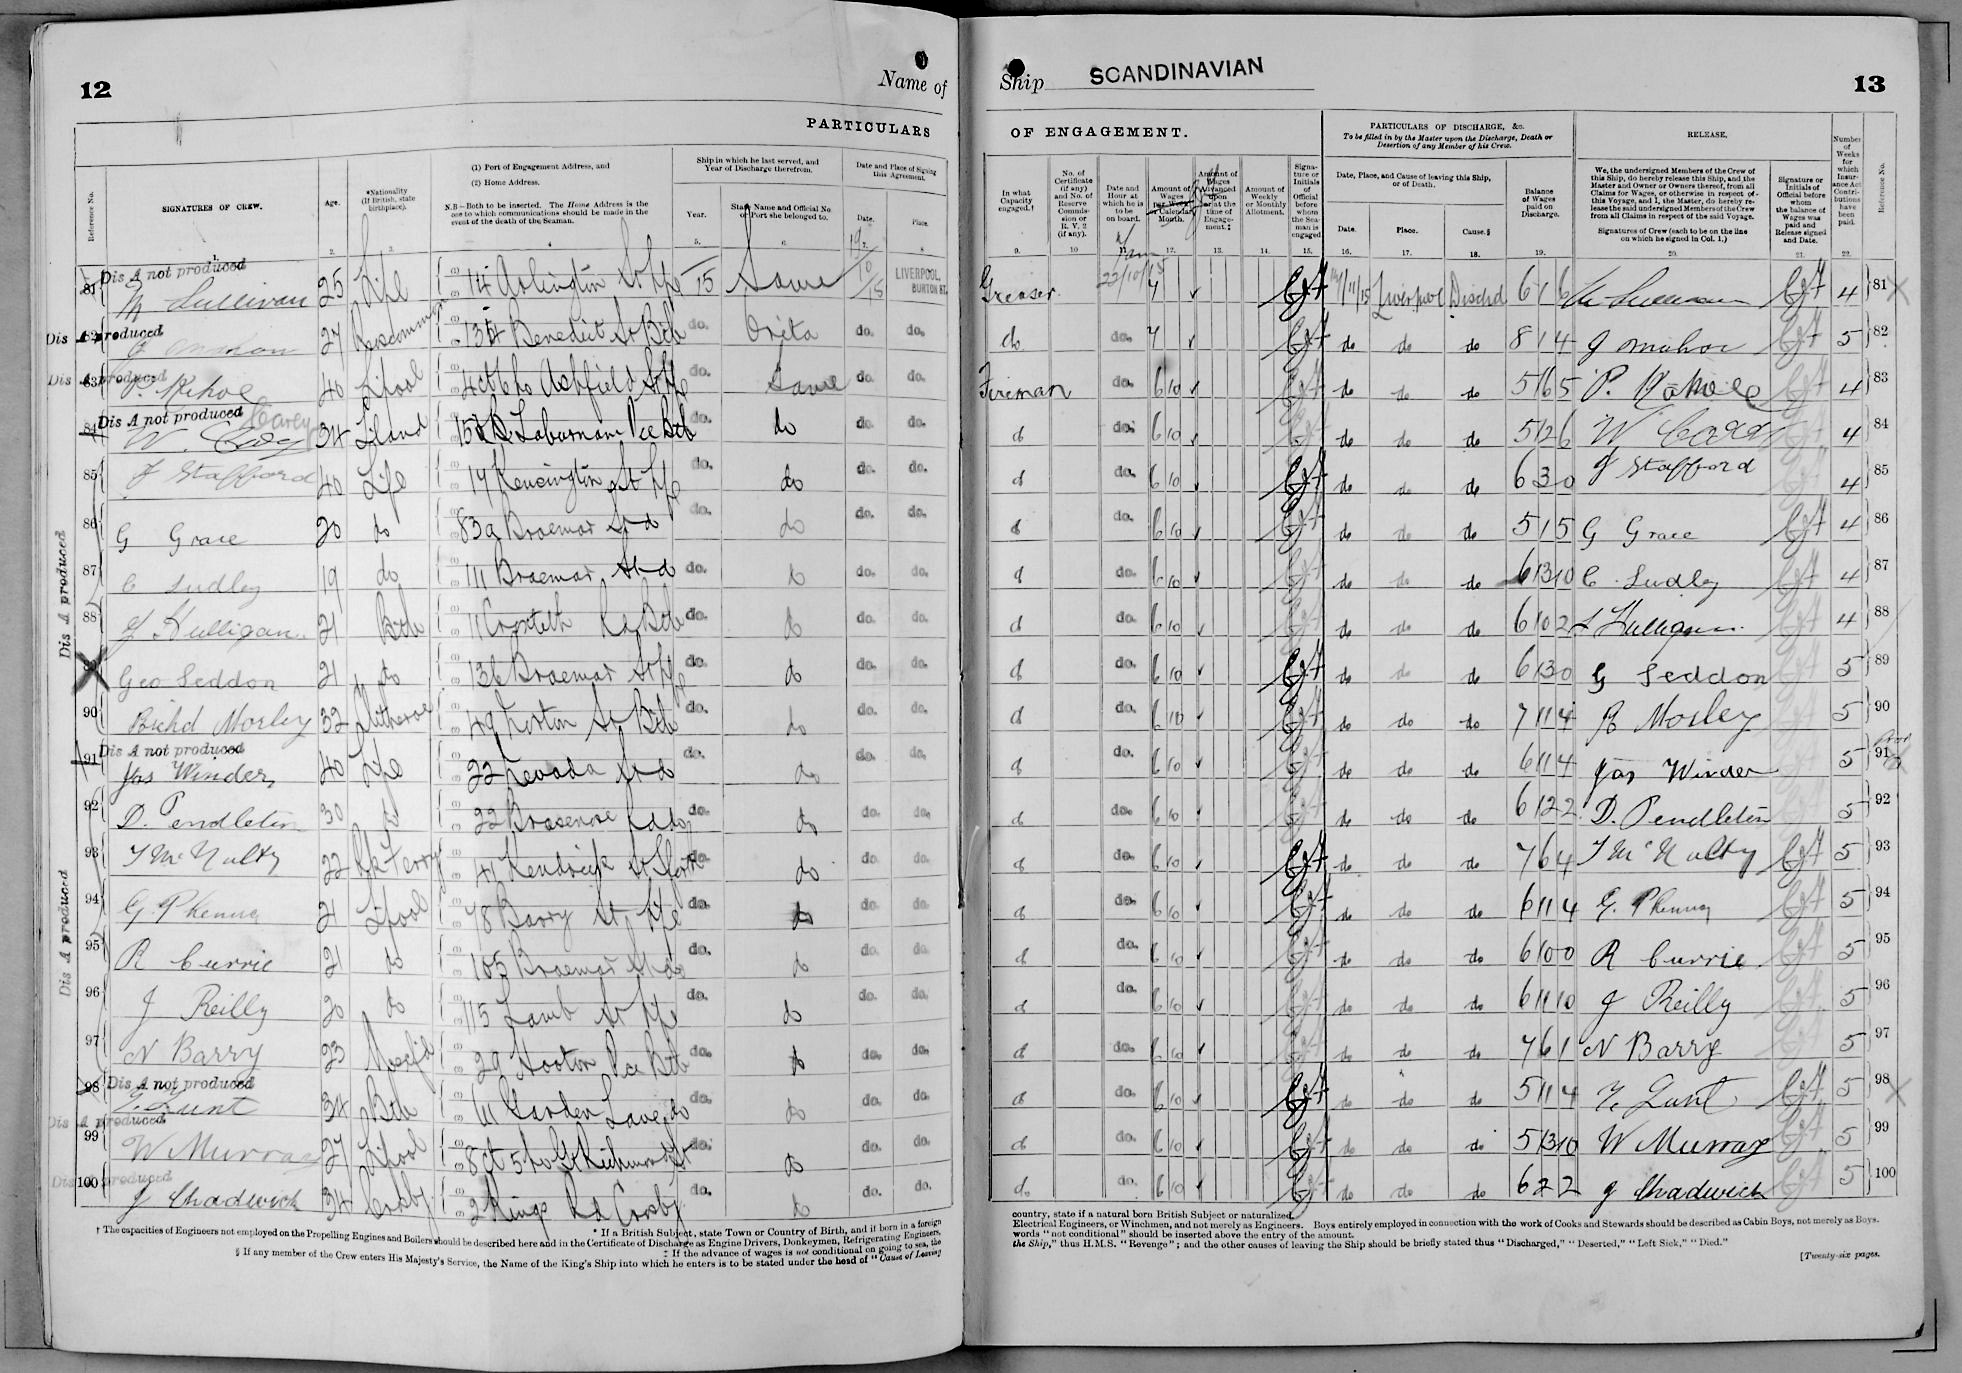 12
Name of
Ship SCANDINAVIAN
13
PARTICULARS
OF ENGAGEMENT.
PARTICULARS OF DISCHARGE, &c.
To be filled in by the Master upon the Discharge, Death or Desertion of any Member of his Crew.
RELEASE.
Reference No.
SIGNATURES OF CREW.
1.
Age.
2.
*Nationality (If British, state birthplace).
3.
(1) Port of Engagement Address, and
(2) Home Address.
N.B—Both to be inserted. The Home Address is the one to which communications should be made in the event of the death of the Seaman.
4
Ship in which he last served, and Year of Discharge therefrom.
Year.
5.
State Name and Official No. or Port she belonged to.
6.
Date and Place of Signing this Agreement.
Date.
Place.
8
In what Capacity engaged.†
9.
No. of Certificate (if any) and No. of Reserve Commission or R. V. 2 (if any).
10
Date and Hour at which he is to be on board.
Amount of Wages per Week or Calendar Month.
12.
Amount of Wages Advanced upon or at the time of Engagement.‡
13.
Amount of Weekly or Monthly Allotment.
14.
Signature or Initials of Official before whom the Seaman is engaged
15.
Date, Place, and Cause of leaving this Ship, or of Death.
Date.
16.
Place.
17.
Cause.§
18.
Balance of Wages paid on Discharge.
19.
We, the undersigned Members of the Crew of this Ship, do hereby release this Ship, and the Master and Owner or Owners thereof, from all Claims for Wages, or otherwise in respect of this Voyage, and I, the Master, do hereby release the said undersigned Members of the Crew from all Claims in respect of the said Voyage.
Signatures of Crew (each to be on the line on which he signed in Col. 1.)
20.
Signature or Initials of Official before whom the balance of Wages was paid and Release signed and Date.
21.
Number of Weeks for which Insurance Act Contributions have been paid.
22.
Reference No.
Dis A not produced
81 M Sullivan 25 L'pl 114 Arlington St 15 Same 19/10/15 LIVERPOOL, BURTON ST. Greaser 22/10/15 7 11/15 Liverpool Dischd 6 1 6 M Sullivan 4 81
Dis A produced
82 J Mahon 27 Roscommon 134 Benedict St Btle do. Orita do. do. do do. 7 do do do 8 1 4 J Mahon 5 82
Dis A produced
83 P. Kehoe 40 L'pool Ashfield St do. Same do. do. Fireman do. 6 10 do do do 5 16 5 P. Kehoe 4 83
Dis A not produced Carey
84 W. 34 Laburnam Pce Btle do. do do. do. do do. 6 10 do do do 5 12 6 W 4 84
85 J Stafford 40 17 Kensington St do. do do. do. do do. 6 10 do do do 6 3 0 J Stafford 4 85
86 G Grace 20 do 83a Braemar St do do. do do. do. do do. 6 10 do do do 5 1 5 G Grace 4 86
Dis A produced
87 C Ludley 19 do 111 Braemar St do do. do do. do. do do. 6 10 do do do 6 13 10 C. Ludley 4 87
88 21 Btle 11 Croxteth Btle do. do do. do. do do. 6 10 do do do 6 10 2 4 88
89 Geo Seddon 21 do 136 Braemar St do. do do. do. do do. 6 10 do do do 6 13 0 G Seddon 5 89
90 Richd Morley 32 Clitheroe 49 St Btle do. do do. do. do do. 6 10 do do do 7 11 4 R Morley 5 90
Dis A not produced
91 Jas Winder 40 L'pl 22 Nevada St do do. do do. do. do do. 6 10 do do do 6 11 4 Jas Winder 5 91
92 D. Pendleton 30 do 22 Brasenose Rd do do. do do. do. do do. 6 10 do do do 6 12 2 D. Pendleton 5 92
93 T McNulty 22 Rk Ferry 41 Kendrick St do. do do. do. do do. 6 10 do do do 7 6 4 T McNulty 5 93
Dis A produced
94 G. 21 L'pool 78 Barry St do. do do. do. do do. 6 10 do do do 6 11 4 G. 5 94
95 R Currie 21 do 105 Braemar St do do. do do. do. do do. 6 10 do do do 6 10 0 R Currie 5 95
96 J Reilly 20 do 115 Lamb St do. do do. do. do do. 6 10 do do do 6 11 10 J Reilly 5 96
97 N Barry 23 29 Hooton Pce Btle do. do do. do. do do. 6 10 do do do 7 6 1 N Barry 5 97
Dis A not produced
98 Lunt 34 Btle Garden Lane do do. do do. do. do do. 6 10 do do do 5 11 4 Lunt 5 98
Dis A produced
99 W Murray 27 L'pool 8 Ct 5 ho Gt Richmond St do. do do. do. do do. 6 10 do do do 5 13 10 W Murray 5 99
Dis A produced
100 J Chadwick 34 Crosby 2 Kings Rd Crosby do. do do. do. do. do. 6 10 do do do 6 2 2 J Chadwick 5 100
* If a British Subject, state Town or Country of Birth, and if born in a foreign country, state if a natural born British Subject or naturalized.
† The capacities of Engineers not employed on the Propelling Engines and Boilers should be described here and in the Certificate of Discharge as Engine Drivers, Donkeymen, Refrigerating Engineers, Electrical Engineers, or Winchmen, and not merely as Engineers. Boys entirely employed in connection with the work of Cooks and Stewards should be described as Cabin Boys, not merely as Boys.
‡ If the advance of wages is not conditional on going to sea, the words "not conditional" should be inserted above the entry of the amount.
§ If any member of the Crew enters His Majesty's Service, the Name of the King's Ship into which he enters is to be stated under the head of "Cause of Leaving the Ship," thus H.M.S. "Revenge"; and the other causes of leaving the Ship should be briefly stated thus "Discharged," "Deserted," "Left Sick," "Died."
[Twenty-six pages.